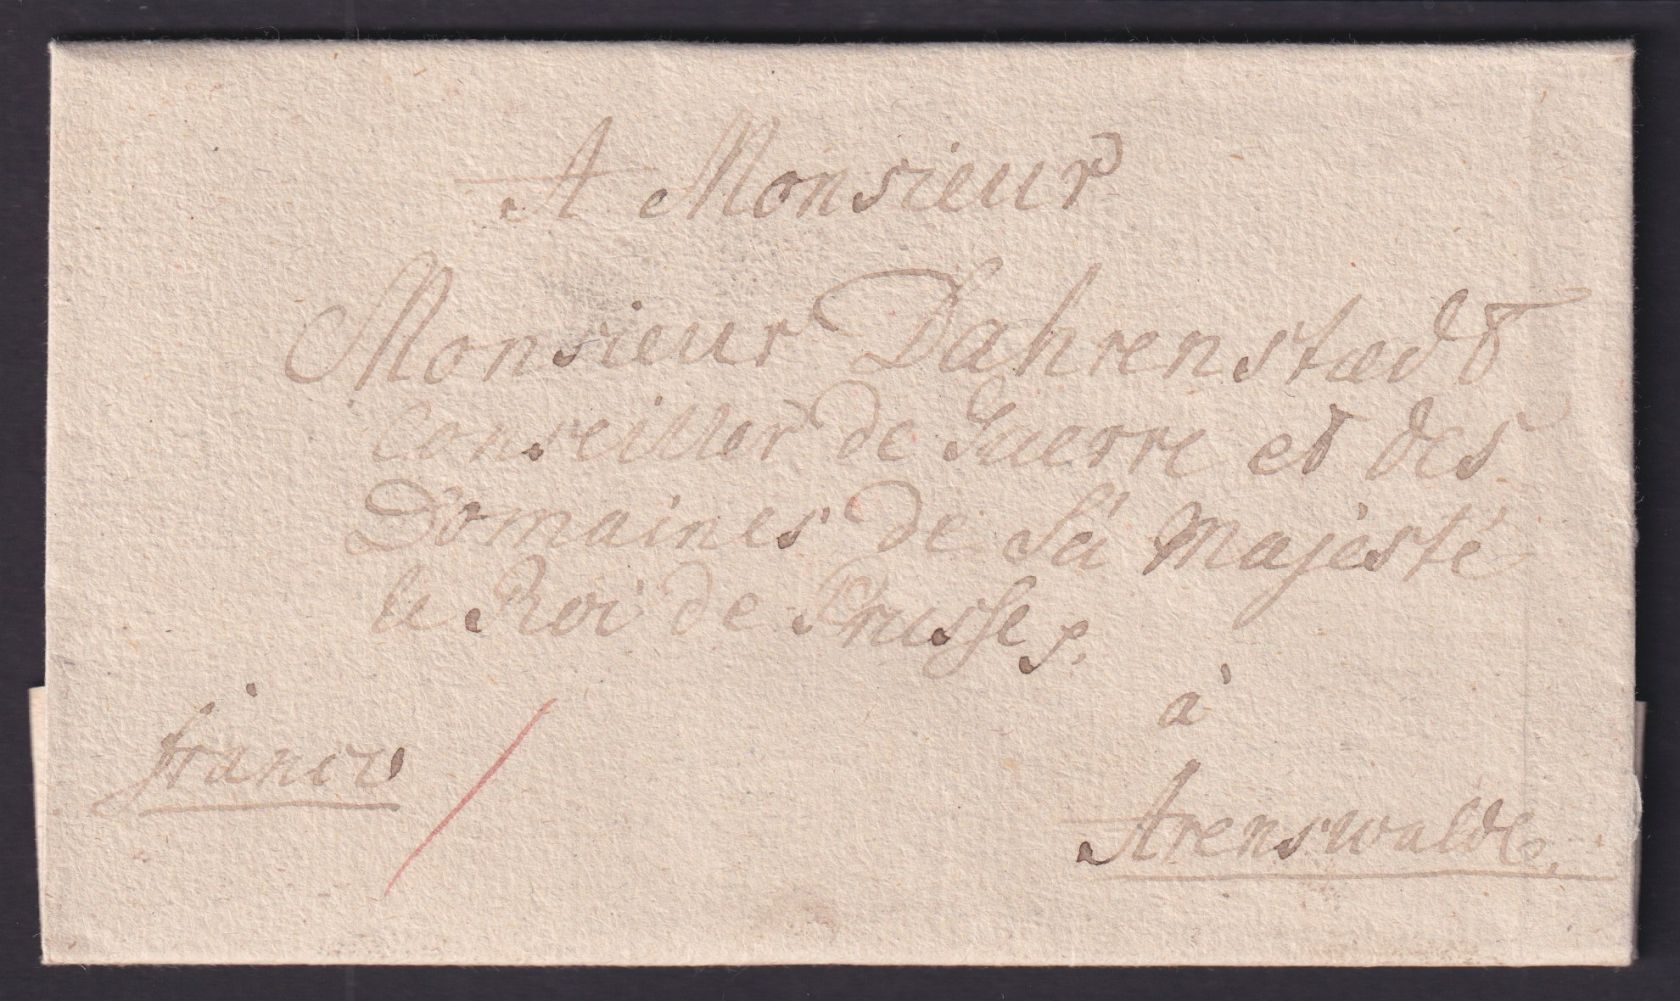 A Monsieur
Monsieur Dahrenstædt
Conseiller de Guerre et des
Domaines de Sa Majesté
le Roi de Prusse p.
à
franco
Arenswalde.